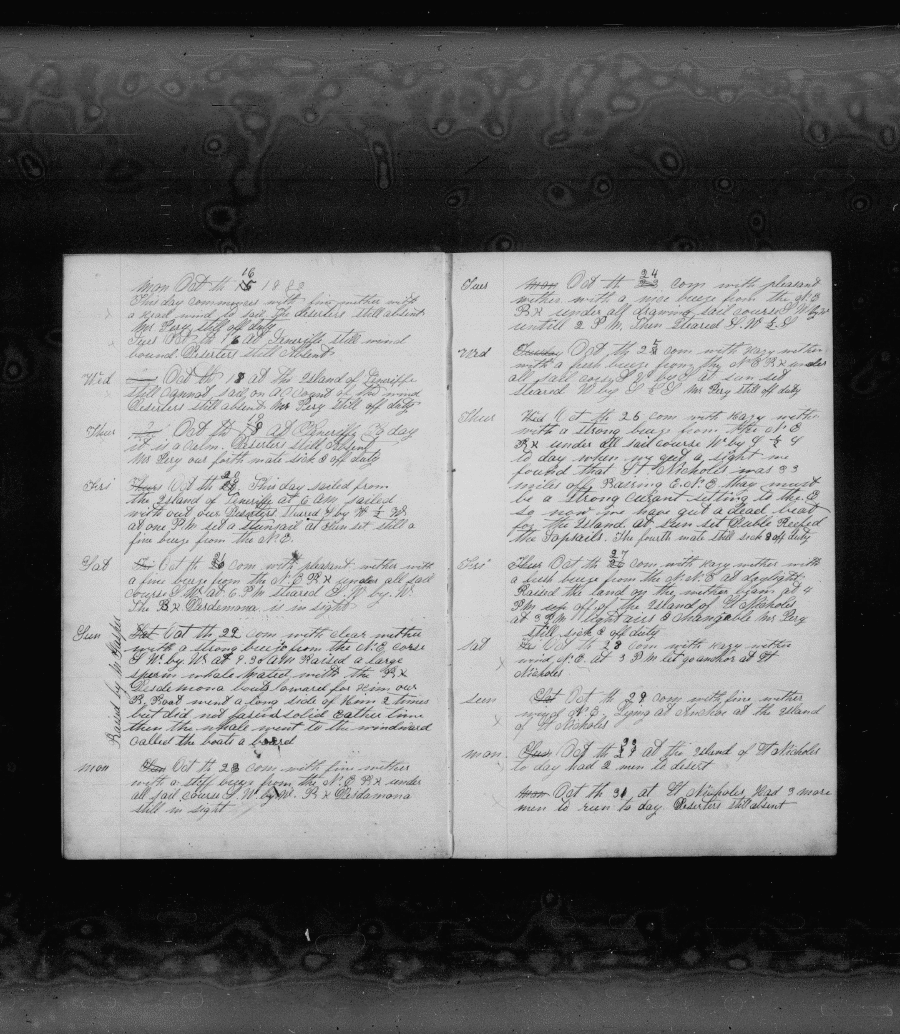 mon Oct th 16 18
This day commences with fine wether with
a head wind to sail The deserters still absent
Mr Pery still off duty
Tues Oct th 16 At Teneriffe still wind
bound. Deserters still Absent
Wed Oct th 18 at the Island of Teneriffe
still cannot sail on account of the wind
Deserters still absent Mr Pery still off duty
Thur Oct th 19 At Teneriffe To day
it is a calm. Deserters still Absent
Mr Pery our forth mate sick & off duty
Fri Thurs Oct th 20 This day sailed from
the Island of Teneriffe at 6 AM sailed
with out our Deserters Steared S by W ½ W.
at one P.M set a stunsail at Sun set still a
fine breze from the N.E.
Sat Fri Oct th 21 com with pleasent wether with
a fine breze from the N.E Bk under all sail
course S.W. at 6 P.M steared S.W. by. W.
The Bk Desdemona is in sight
Raised by Mr Gasper
Sun Sat Oct th 22 com with clear wether
with a strong breze from the N.E. corse
S.W. by W. at 9.30 AM Raised a large
sperm whale Mated with the Bk
Desdemona boats lowared for him our
B. Boat went a long side of him 2 times
but did not fasend solid eather time
then the whale went to the windward
Called the boats a board
mon Sun Oct th 23 com with fine wether
with a stiff breze from the N.E Bk under
all sail course S.W by W. Bk Desdamona
still in sight
Tues Mon Oct th 24 com with pleasant
wether with a nice breze from the N.E
Bk under all drawing sail course S.W by W
untill 2 P.M. Then Steared S.W ½ S
Wed Oct th 25 com with hazy wether
with a fresh breze from the N.E Bk under
all sail at sun set
steared W by S ½ S Mr Pery still off duty
Thur Wed Oct th 26 com with hazy wether
with a strong breze from the N.E
Bk under all sail course W by S ½ S
to day when we got a sight we
found that St Nicholes was 33
miles off Bearing E.N.E thay must
be a strong curant setting to the E
so now we have got a dead beat
for the Island at Sun set Duble Reefed
the Topsails. The fourth mate still sick & off duty
Fri Thur Oct th 27 com with hazy wether with
a fresh breze from the N.N.E at daylight
Raised the land on the wether beam at 4
P.M the Island of St Nicholes
at 3 P.M light airs & changable Mr Pery
still sick & off duty
sat Oct th 28 com with hazy wether
wind N.E. at 3 P.M let go anchor at St
Nicholes
sun Sat Oct th 29 com with fine wether
wind N.E. Lying at Anchor at the Island
of St Nicholes
mon Sun Oct th at the Island of St Nicholes
to day had 2 men to desert
Mon Oct th 31 at St Nicholes. Had 3 more
men to run to day Deserters still absent